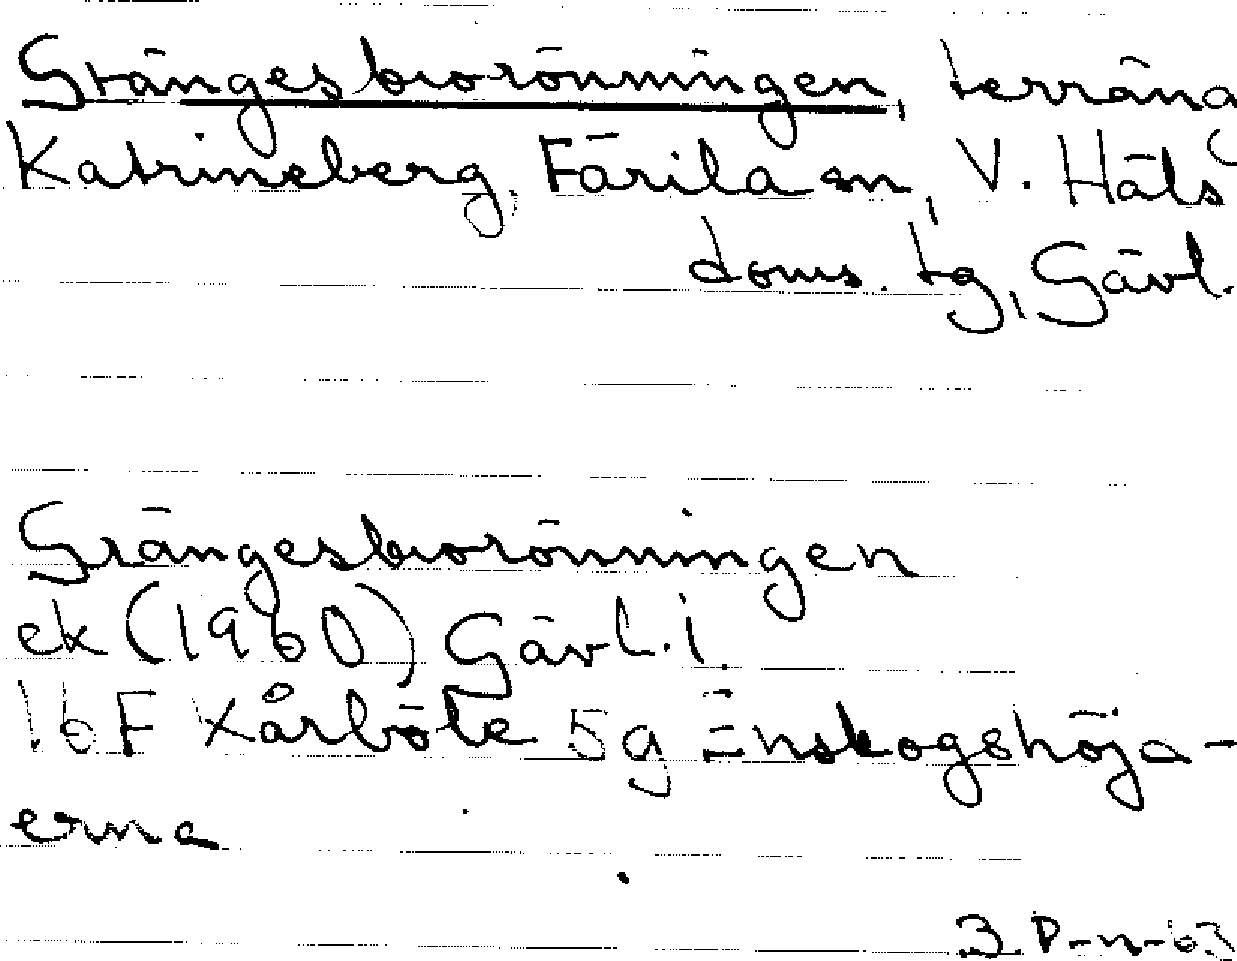 Strängesbrorönningen, terräng
Katrineberg, Färila sn, V. Häls
doms. tg, Gävl.
Strängesbrorönningen
ek (1960) Gävl. l.
16F Kårböle 5g Enskogshöja-
erna